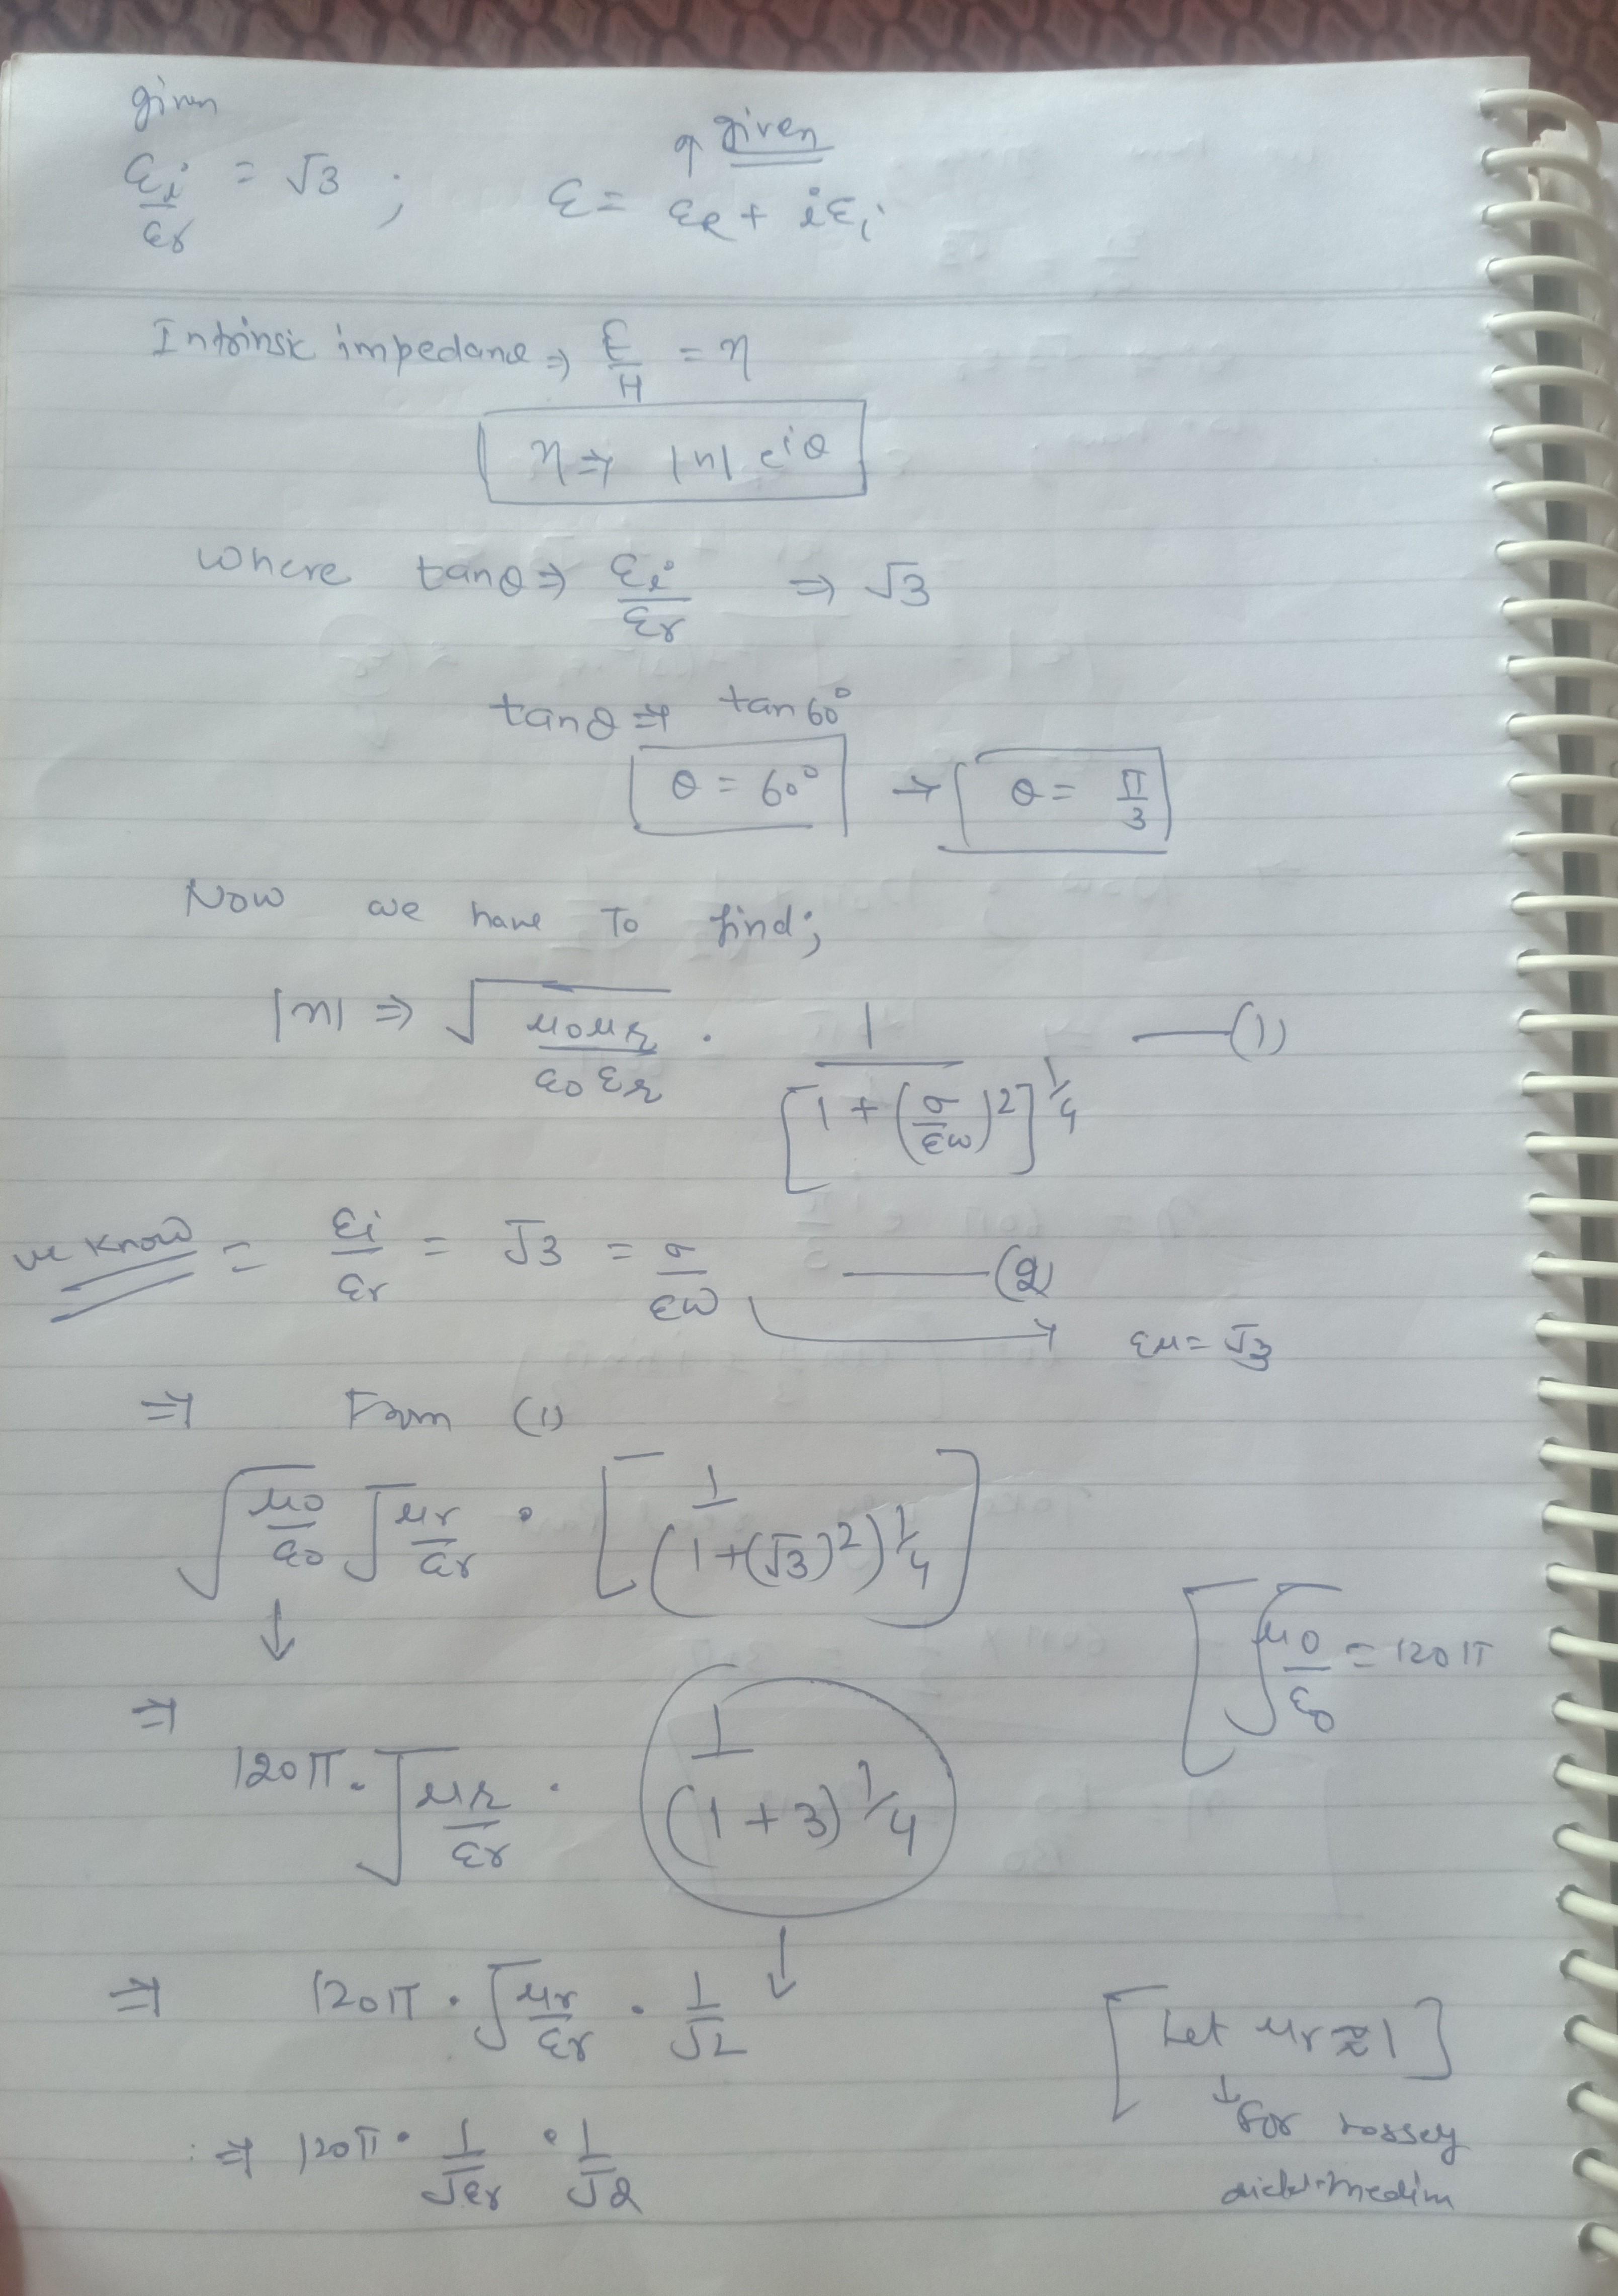 given
εi/εr = √3 ; ε = εR + iεi
given
Intrinsic impedane ⇒ E/H = η
η ⇒ |η| e^iθ
where tanθ ⇒ εi/εr ⇒ √3
tanθ ⇒ tan 60°
θ = 60° → θ = π/3
Now we have To find;
|η| ⇒ √(μ0μr/ε0εr) · 1/[1 + (σ/εω)²]^1/4 —(1)
we know = εi/εr = √3 = σ/εω —(2)
εμ = √3
⇒ From (1)
√(μ0/ε0) √(μr/εr) · [1/(1+(√3)²)^1/4]
[√(μ0/ε0) = 120π
⇒ 120π · √(μr/εr) · 1/(1+3)^1/4
⇒ 120π · √(μr/εr) · 1/√2
[Let μr ≈ 1]
⇒ 120π · 1/√εr · 1/√2
↓ for